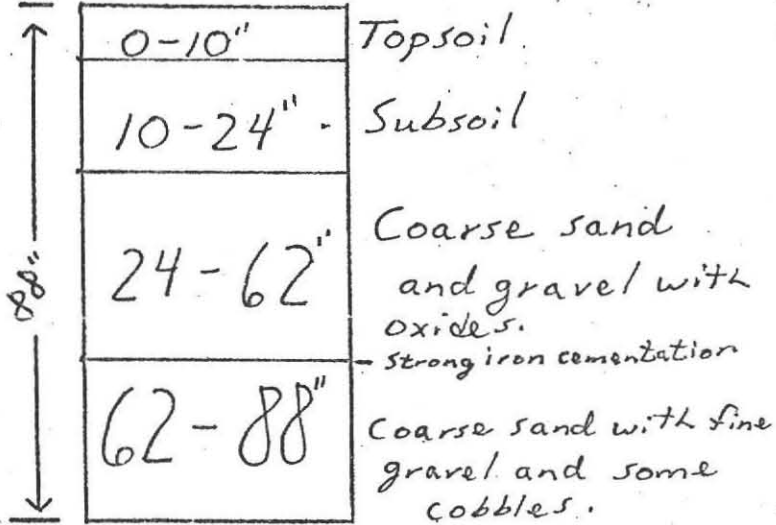 0-10" Topsoil.
10-24" - Subsoil
24-62" Coarse sand
and gravel with
oxides.
- Strong iron cementation
62-88" Coarse sand with fine
gravel and some
cobbles.
88"